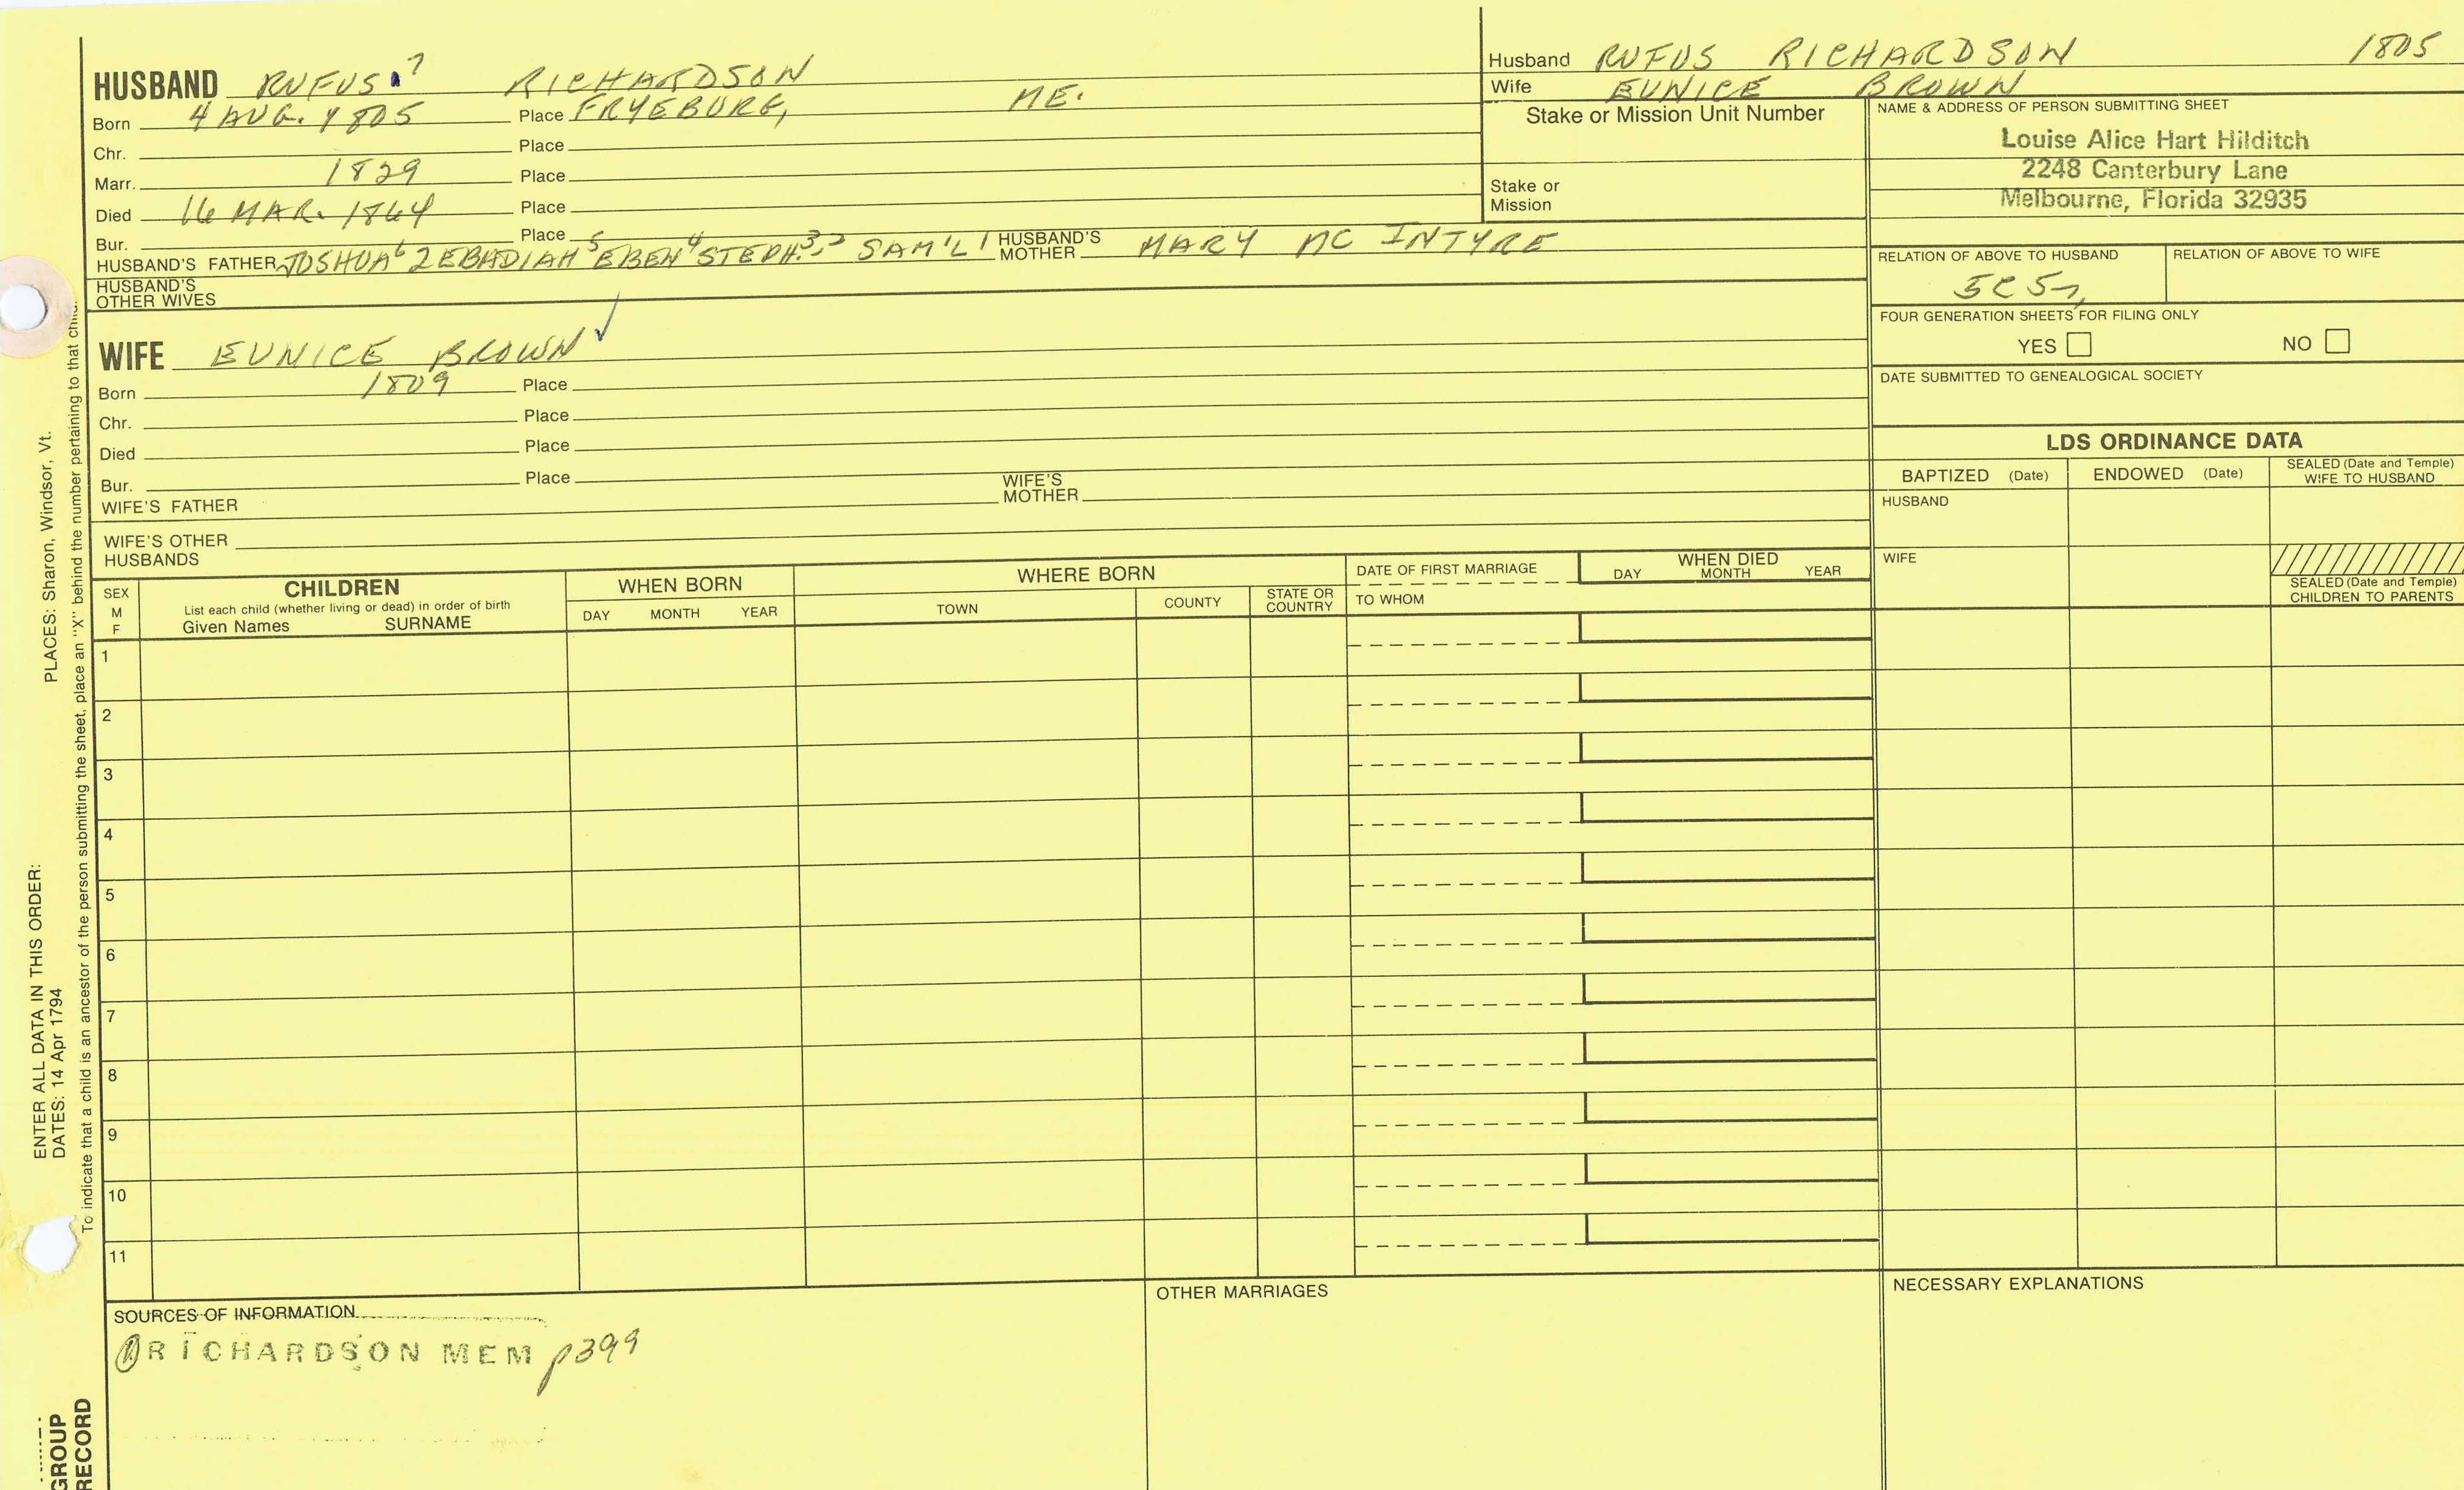 HUSBAND RUFUS 7 RICHARDSON
Born 4 AUG. 1805 Place FRYEBURG, ME.
Chr. Place
Marr. 1829 Place
Died 16 MAR. 1864 Place
Bur. Place
HUSBAND'S FATHER JOSHUA 6 ZEBADIAH 5 EBEN 4 STEPH. 3, 2 SAM'L 1 HUSBAND'S MOTHER MARY MC INTYRE
HUSBAND'S OTHER WIVES
Husband RUFUS RICHARDSON 1805
Wife EUNICE BROWN
Stake or Mission Unit Number
Stake or
Mission
NAME & ADDRESS OF PERSON SUBMITTING SHEET
Louise Alice Hart Hilditch
2248 Canterbury Lane
Melbourne, Florida 32935
RELATION OF ABOVE TO HUSBAND RELATION OF ABOVE TO WIFE
FOUR GENERATION SHEETS FOR FILING ONLY
YES NO
DATE SUBMITTED TO GENEALOGICAL SOCIETY
WIFE EUNICE BROWN ✓
Born 1809 Place
Chr. Place
Died Place
Bur. Place
WIFE'S FATHER WIFE'S MOTHER
WIFE'S OTHER
HUSBANDS
LDS ORDINANCE DATA
BAPTIZED (Date) ENDOWED (Date) SEALED (Date and Temple) WIFE TO HUSBAND
HUSBAND
WIFE
SEALED (Date and Temple)
CHILDREN TO PARENTS
SEX M F
CHILDREN
List each child (whether living or dead) in order of birth
Given Names SURNAME
WHEN BORN
DAY MONTH YEAR
WHERE BORN
TOWN COUNTY STATE OR COUNTRY
DATE OF FIRST MARRIAGE
TO WHOM
WHEN DIED
DAY MONTH YEAR
1
2
3
4
5
6
7
8
9
10
11
SOURCES OF INFORMATION
RICHARDSON MEM p399
OTHER MARRIAGES
NECESSARY EXPLANATIONS
ENTER ALL DATA IN THIS ORDER:
DATES: 14 Apr 1794 PLACES: Sharon, Windsor, Vt.
To indicate that a child is an ancestor of the person submitting the sheet, place an "X" behind the number pertaining to that
GROUP
RECORD